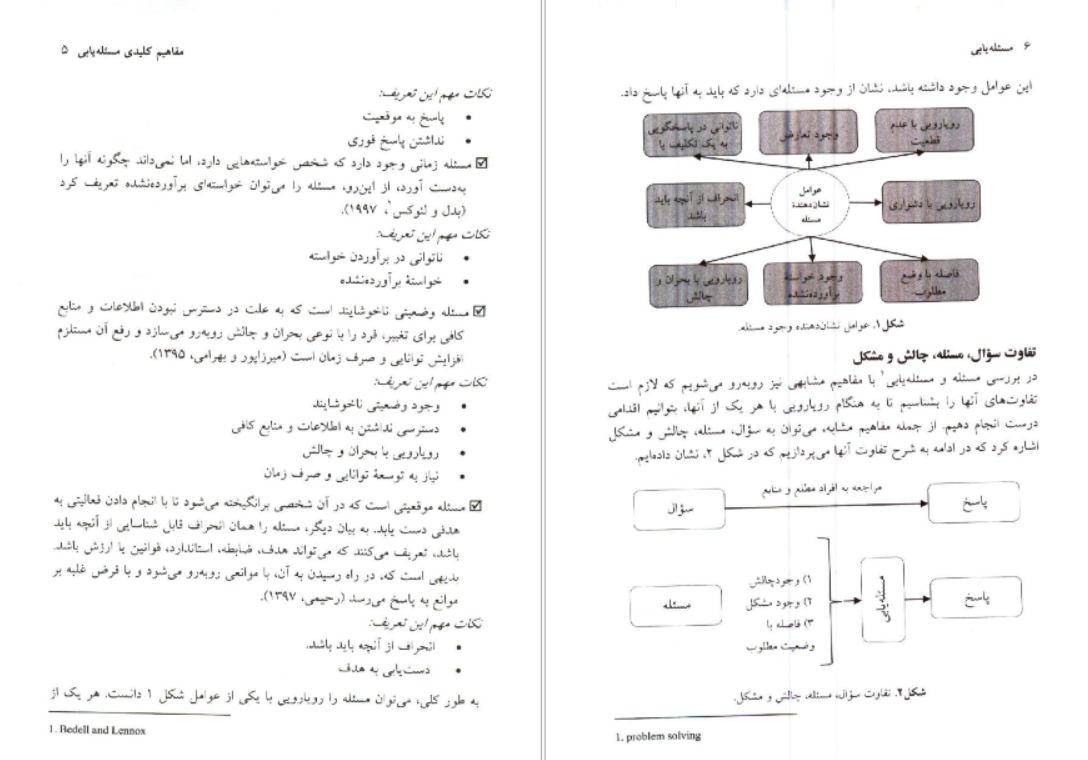 مفاهیم کلیدی مسئله‌یابی ۵
نکات مهم این تعریف:
• پاسخ به موقعیت
• نداشتن پاسخ فوری
☑ مسئله زمانی وجود دارد که شخص خواسته‌هایی دارد، اما نمی‌داند چگونه آنها را
به‌دست آورد، از این‌رو، مسئله را می‌توان خواسته‌ای برآورده‌نشده تعریف کرد
(بدل و لنوکس۱، ۱۹۹۷).
نکات مهم این تعریف:
• ناتوانی در برآوردن خواسته
• خواستهٔ برآورده‌نشده
☑ مسئله وضعیتی ناخوشایند است که به علت در دسترس نبودن اطلاعات و منابع
کافی برای تغییر، فرد را با نوعی بحران و چالش روبه‌رو می‌سازد و رفع آن مستلزم
افزایش توانایی و صرف زمان است (میرزاپور و بهرامی، ۱۳۹۵).
نکات مهم این تعریف:
• وجود وضعیتی ناخوشایند
• دسترسی نداشتن به اطلاعات و منابع کافی
• رویارویی با بحران و چالش
• نیاز به توسعهٔ توانایی و صرف زمان
☑ مسئله موقعیتی است که در آن شخصی برانگیخته می‌شود تا با انجام دادن فعالیتی به
هدفی دست یابد. به بیان دیگر، مسئله را همان انحراف قابل شناسایی از آنچه باید
باشد، تعریف می‌کنند که می‌تواند هدف، ضابطه، استاندارد، قوانین یا ارزش باشد.
بدیهی است که، در راه رسیدن به آن، با موانعی روبه‌رو می‌شود و با فرض غلبه بر
موانع به پاسخ می‌رسد (رحیمی، ۱۳۹۷).
نکات مهم این تعریف:
• انحراف از آنچه باید باشد.
• دست‌یابی به هدف
به طور کلی، می‌توان مسئله را رویارویی با یکی از عوامل شکل ۱ دانست. هر یک از
1. Bedell and Lennox
۶ مسئله‌یابی
این عوامل وجود داشته باشد، نشان از وجود مسئله‌ای دارد که باید به آنها پاسخ داد.
رویارویی با عدم
قطعیت
وجود تعارض
ناتوانی در پاسخگویی
به یک تکلیف یا
رویارویی با دشواری
عوامل
نشان‌دهندهٔ
مسئله
انحراف از آنچه باید
باشد
فاصله با وضع
مطلوب
وجود خواستهٔ
برآورده‌نشده
رویارویی با بحران و
چالش
شکل ۱. عوامل نشان‌دهنده وجود مسئله.
تفاوت سؤال، مسئله، چالش و مشکل
در بررسی مسئله و مسئله‌یابی۱ با مفاهیم مشابهی نیز روبه‌رو می‌شویم که لازم است
تفاوت‌های آنها را بشناسیم تا به هنگام رویارویی با هر یک از آنها، بتوانیم اقدامی
درست انجام دهیم. از جمله مفاهیم مشابه، می‌توان به سؤال، مسئله، چالش و مشکل
اشاره کرد که در ادامه به شرح تفاوت آنها می‌پردازیم که در شکل ۲، نشان داده‌ایم.
سؤال
مراجعه به افراد مطلع و منابع
پاسخ
مسئله
۱) وجودچالش
۲) وجود مشکل
۳) فاصله با
وضعیت مطلوب
مسئله‌یابی
پاسخ
شکل ۲. تفاوت سؤال، مسئله، چالش و مشکل.
1. problem solving